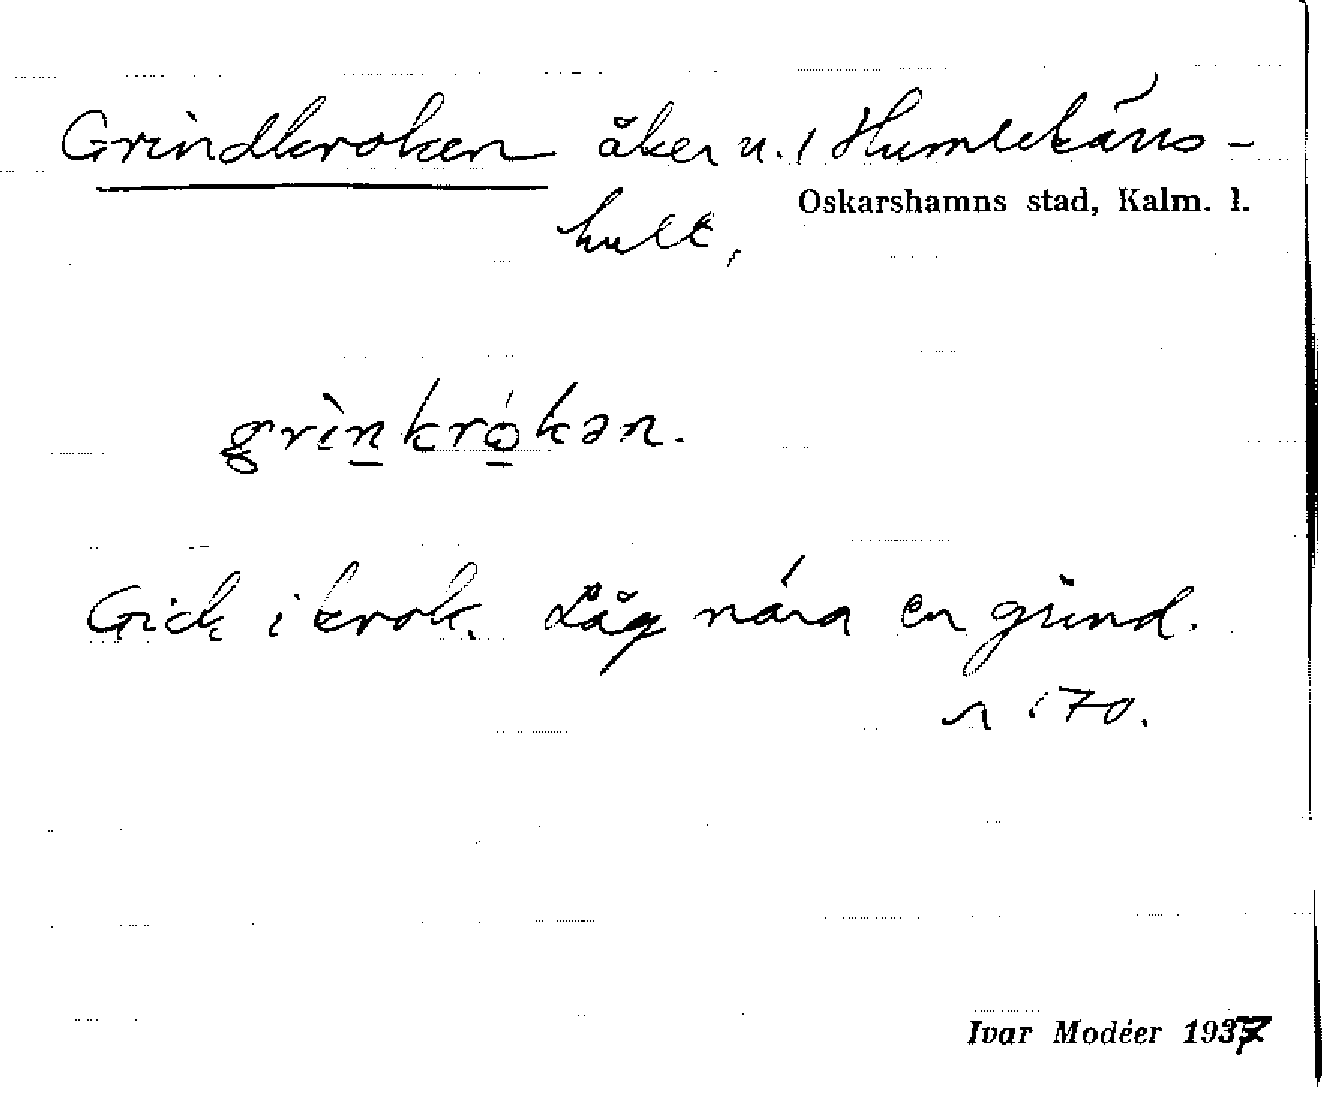 Grindkroken åker u. / Humlekärrs-
Oskarshamns stad, Kalm. l.
hult,
grìnkrókən.
Gick i krok. Låg nära en grind.
n 170.
Ivar Modéer 1937